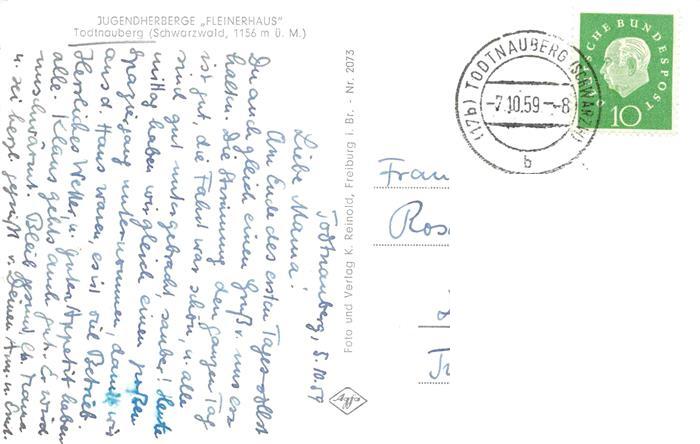 JUGENDHERBERGE „FLEINERHAUS"
Todtnauberg (Schwarzwald, 1156 m ü. M.)
Todtnauberg, 5.10.59
Liebe Mama!
Am Ende des ersten Tages sollst
Du auch gleich einen Gruß v. uns er
halten. Die Stimmung den ganzen Tag
ist gut, die Fahrt war schön, u. alle
sind gut untergebracht, sauber! Heute
mittag haben wir gleich einen großen
Spaziergang unternommen, damit wir
aus d. Haus waren, es ist viel Betrieb.
Herrliches Wetter, u. guten Appetit haben
alle. Klaus gehts auch gut. Er wird
Bleib gesund, lb. Mama
u. sei herzl. gegrüßt v. Deinen
Foto und Verlag K. Reinold, Freiburg i. Br. - Nr. 2073
Agfa
(17b) TODTNAUBERG (SCHWARZW)
-7.10.59--8
b
DEUTSCHE BUNDESPOST
10
Frau